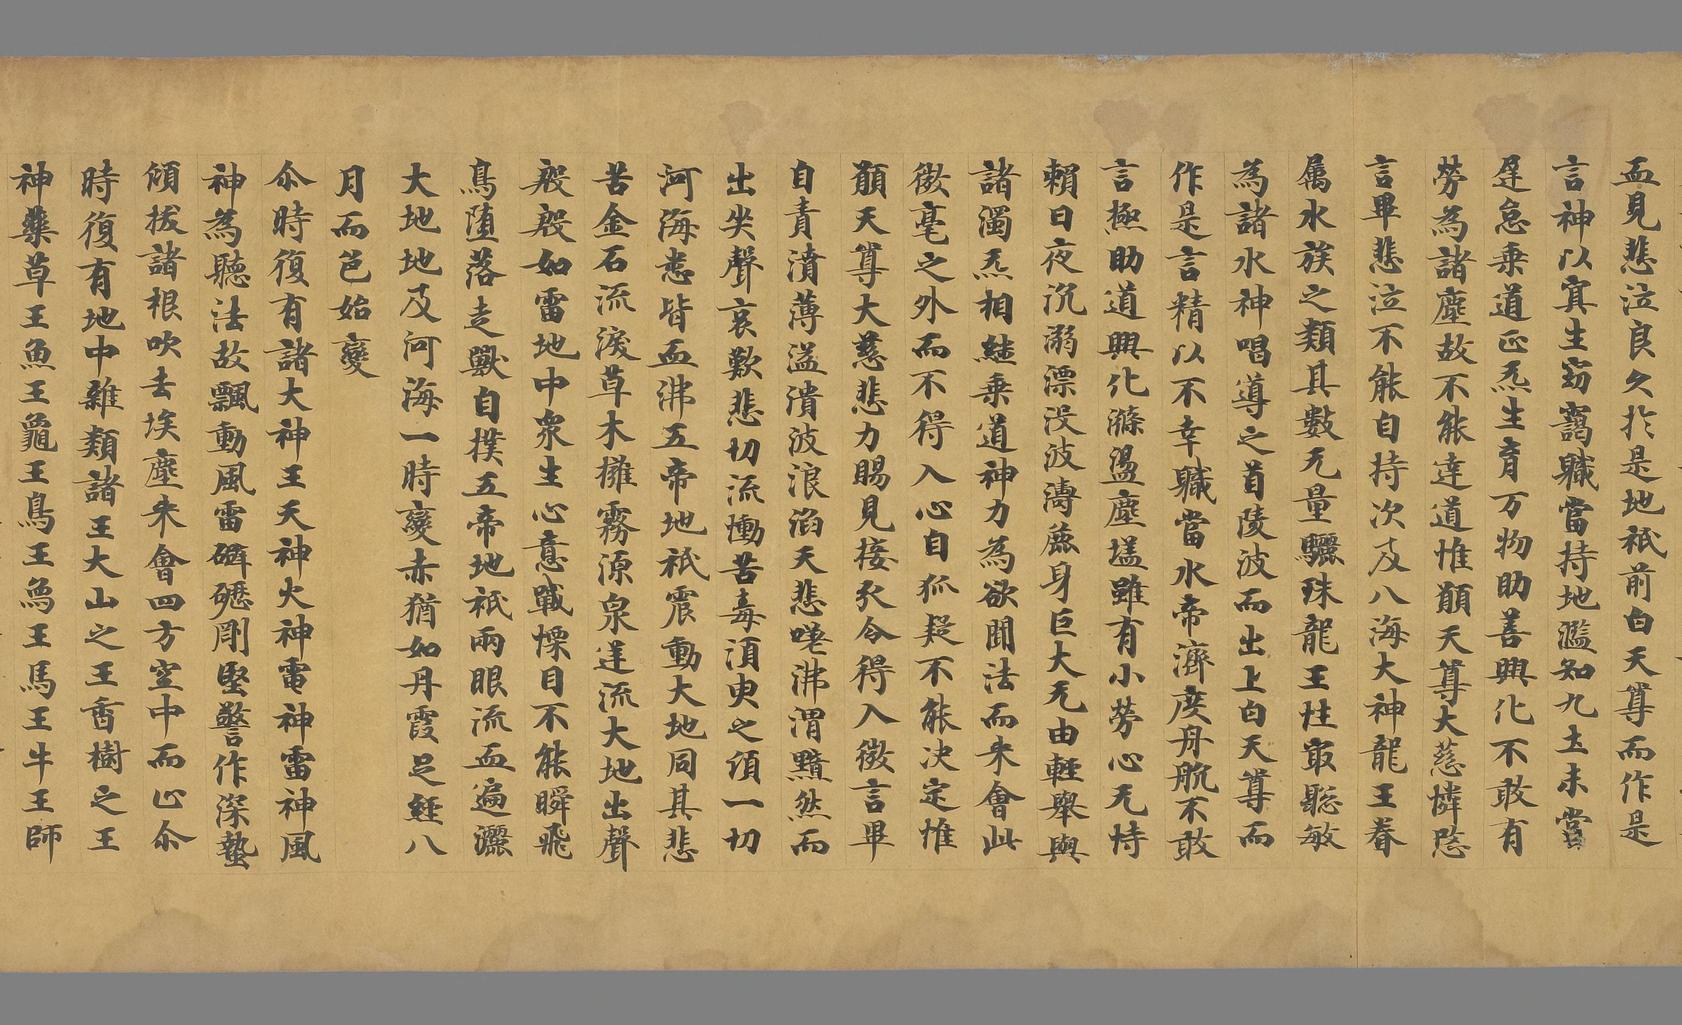 血見悲泣良久於是地祇前白天尊而作是
言神以寘生窈藹職當持地濫知九土未甞
遅怠乗道正炁生育万物助善興化不敢有
勞為諸塵故不能達道惟願天尊大慈憐愍
言畢悲泣不能自持次及八海大神龍王眷
属水族之類其數无量驪珠龍王性取聡敏
為諸水神唱導之首陵波而出上白天尊而
作是言精以不幸職當水帝濟度舟航不敢
言極助道興化滌盪塵壒雖有小勞心无恃
賴日夜沉溺漂没波濤麁身巨大无由輕舉與
諸濁炁相結乗道神力為欲聞法而来會此
微毫之外而不得入心自狐疑不能决定惟
願天尊大慈悲力賜見接引令得入微言畢
自責濆薄溢潰波浪滔天悲嘊沸渭黯然而
出失聲哀歎悲切流慟苦毒湏臾之頃一切
河海悉皆血沸五帝地祇震動大地同其悲
苦金石流淚草木摧霧源泉逆流大地出聲
殷殷如雷地中衆生心意戰慄目不能瞬飛
鳥墮落走獸自撲五帝地祇兩眼流血遍灑
大地地及河海一時變赤猶如丹霞足經八
月而色始變
尒時復有諸大神王天神火神電神雷神風
神為聽法故飄動風雷礔礰剛堅警作深蟄
傾拔諸根吹去埃塵来會四方空中而止尒
時復有地中雜類諸王大山之王香樹之王
神藥草王魚王龜王鳥王魚王馬王牛王師